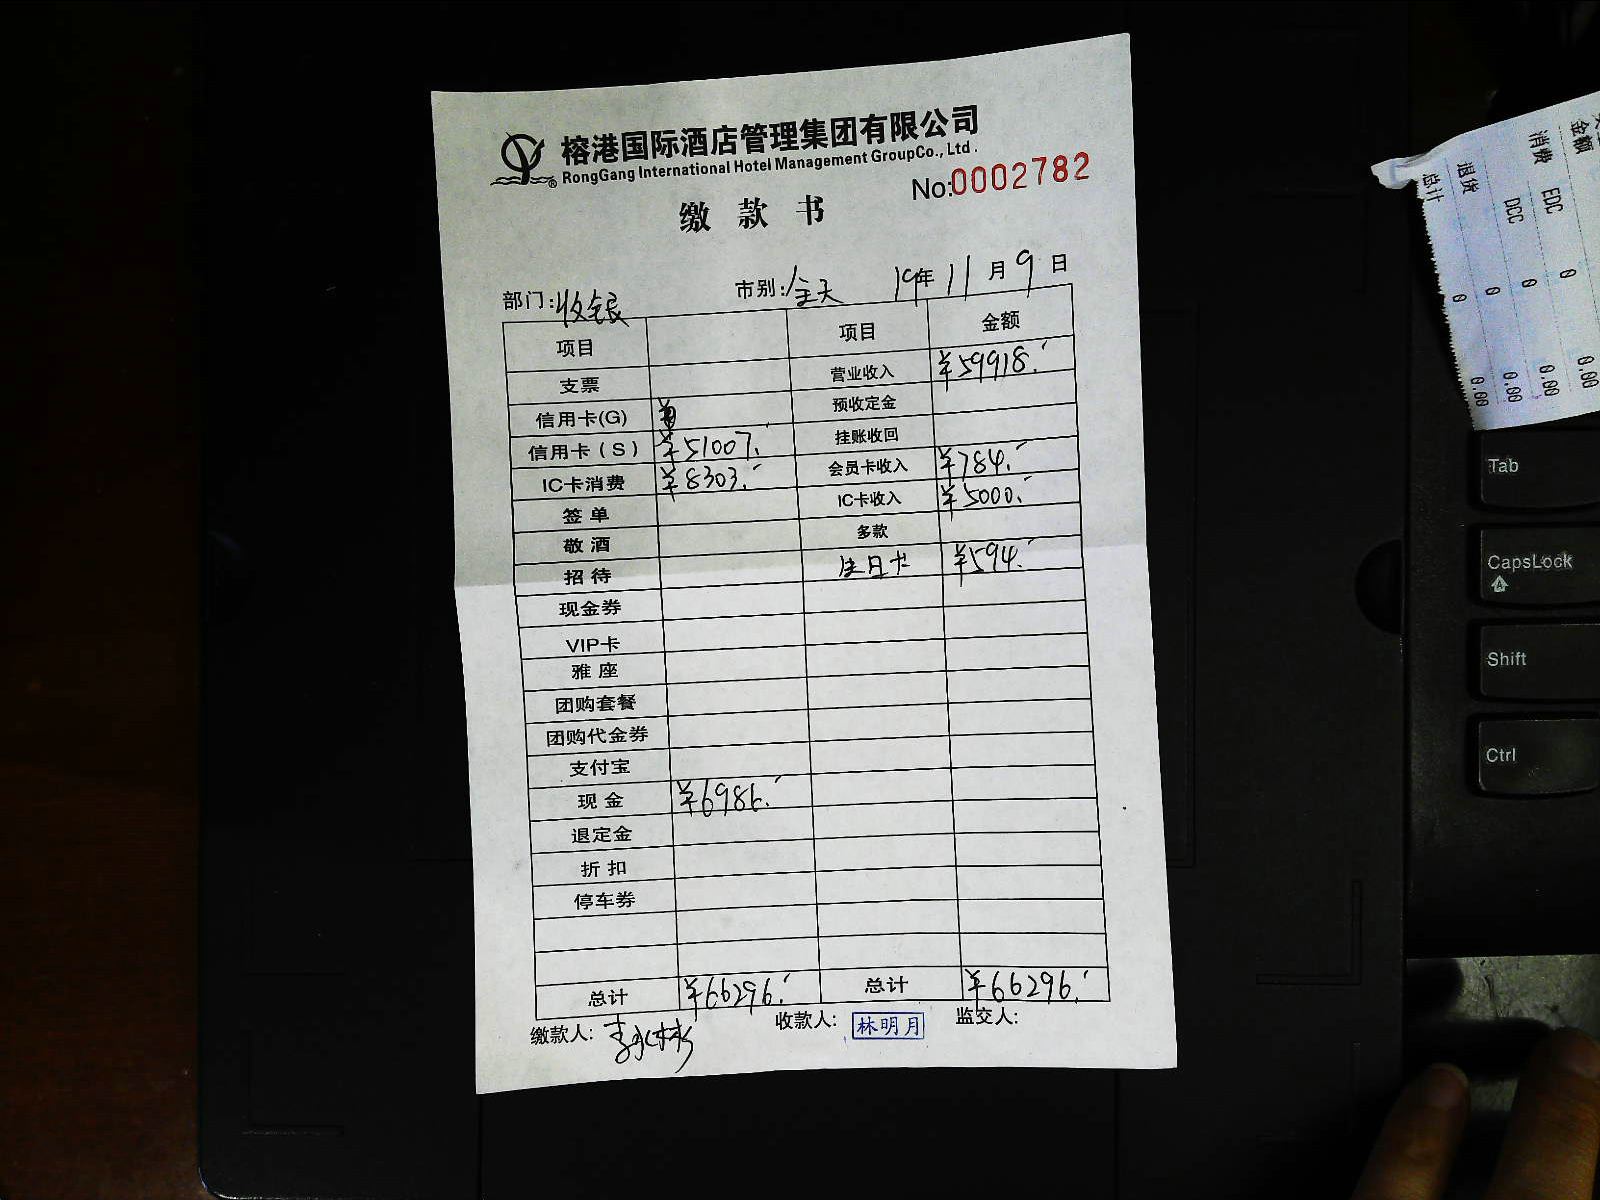 榕港国际酒店管理集团有限公司
RongGang International Hotel Management GroupCo., Ltd.
No:0002782
缴款书
部门:收银 市别:全天 19年11月9日
项目 项目 金额
支票 营业收入 ¥59918.
信用卡(G) 预收定金
信用卡(S) ¥51007. 挂账收回
IC卡消费 ¥8303. 会员卡收入 ¥784.
签单 IC卡收入 ¥5000.
敬酒 多款
招待 生日卡 ¥594.
现金券
VIP卡
雅座
团购套餐
团购代金券
支付宝
现金 ¥6986.
退定金
折扣
停车券
总计 ¥66296. 总计 ¥66296.
缴款人: 收款人: 林明月 监交人:
金额
消费 EDC 0 0.00
DCC 0 0.00
退货 0 0.00
总计 0 0.00
Tab
CapsLock
Shift
Ctrl